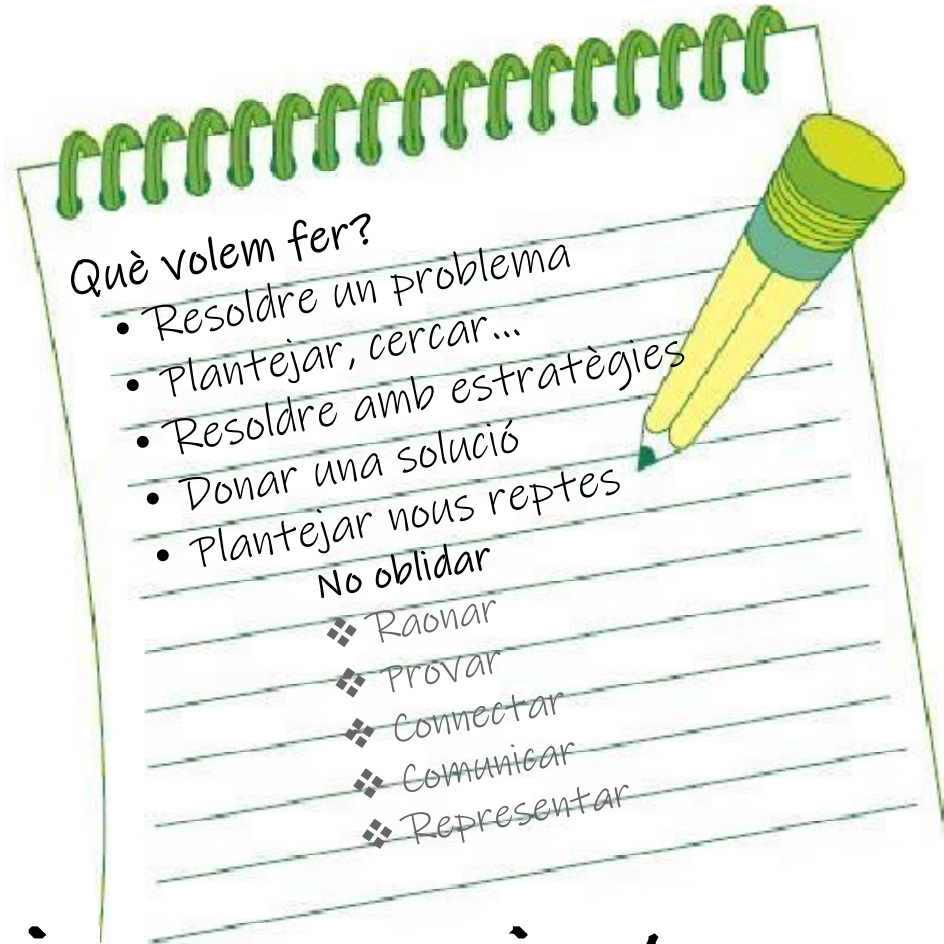 Què volem fer?
• Resoldre un problema
• Plantejar, cercar...
• Resoldre amb estratègies
• Donar una solució
• Plantejar nous reptes
No oblidar
❖ Raonar
❖ Provar
❖ Connectar
❖ Comunicar
❖ Representar